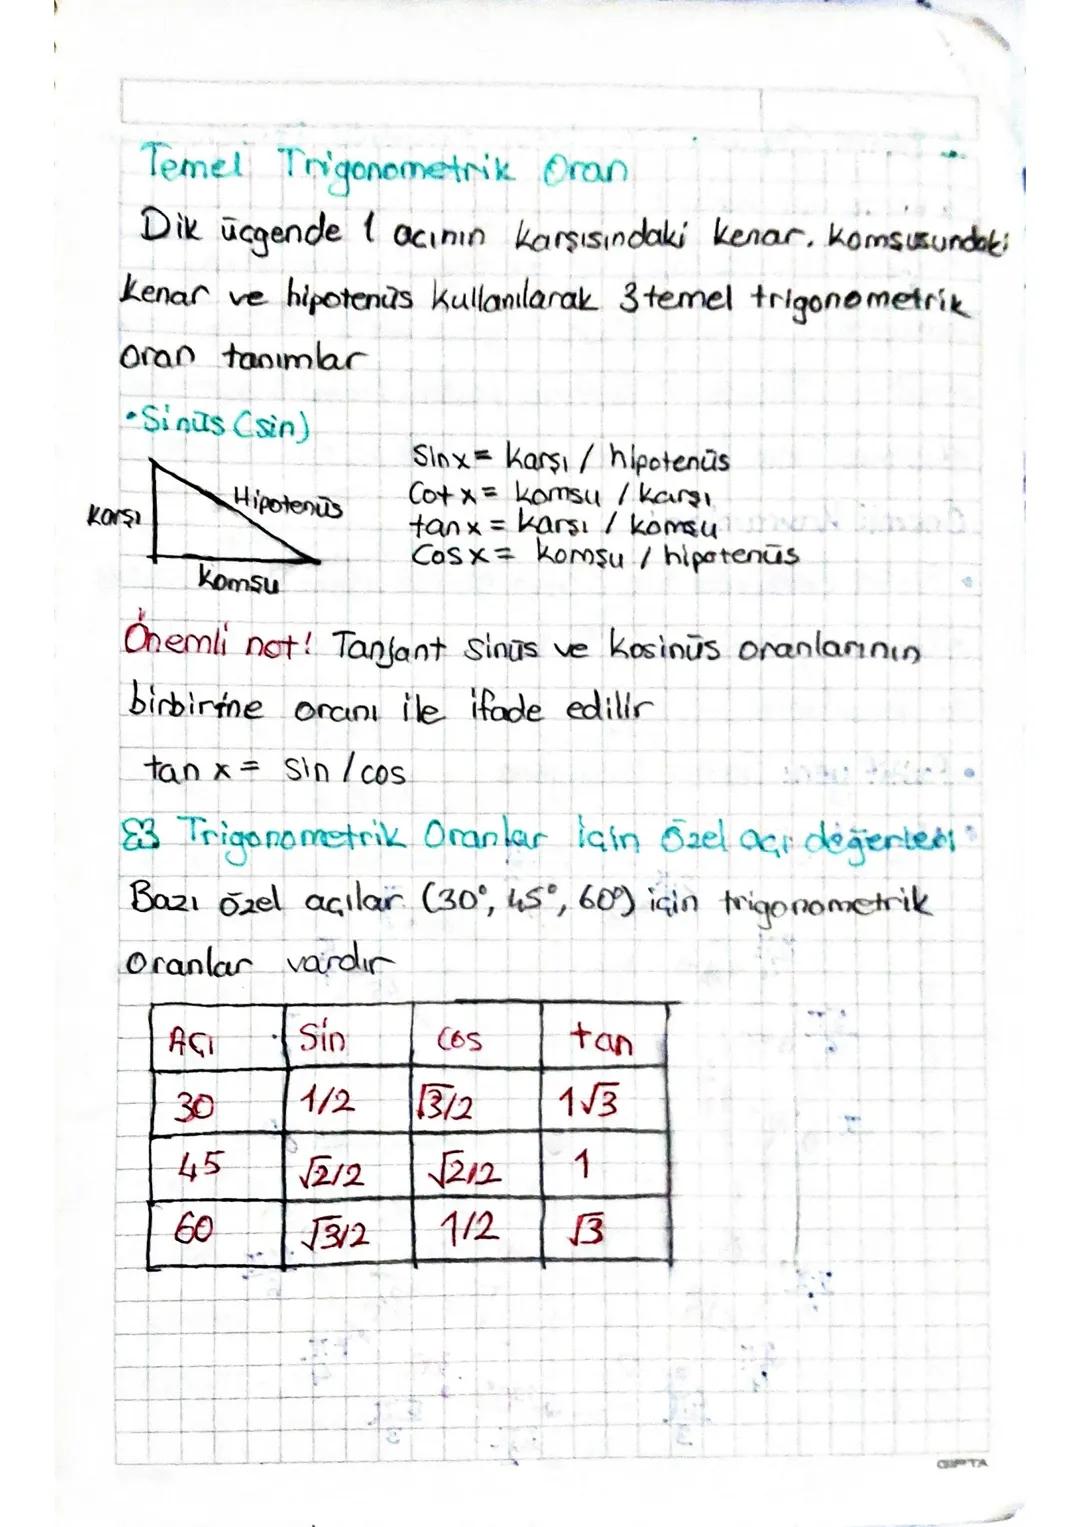 Temel Trigonometrik Oran
Dik üçgende 1 acının karşısındaki kenar, komşusundaki
kenar ve hipotenüs kullanılarak 3 temel trigonometrik
oran tanımlar
• Sinüs (sin)
Sinx = karşı / hipotenüs
Cot x = komsu / karşı
tanx = karşı / komşu
Cosx = komşu / hipotenüs
Karşı
Hipotenüs
Komşu
Önemli not! Tanjant sinüs ve kosinüs oranlarının
birbirine oranı ile ifade edilir
tan x = sin / cos
Trigonometrik Oranlar için özel açı değerleri
Bazı özel açılar (30°, 45°, 60°) için trigonometrik
oranlar vardır
Açı Sin cos tan
30 1/2 √3/2 1√3
45 √2/2 √2/2 1
60 √3/2 1/2 √3
GIPTA